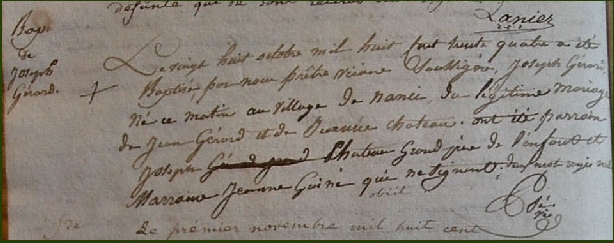 défunte qui ne sont
Lanier
Bap.
de
Joseph
Gérard.
Le vingt huit octobre mil huit cent trente quatre a été
Baptisé, par nous prêtre vicaire soussigné, Joseph Gérard
né ce matin au village de nanci, du légitime mariage
de Jean Gérard et de Jeannée chateau. ont été parrain
Joseph Chateau Grand père de l'enfant et
Marraine Jeanne qui ne signent. deux mot rayés nul
Le premier novembre mil huit cent